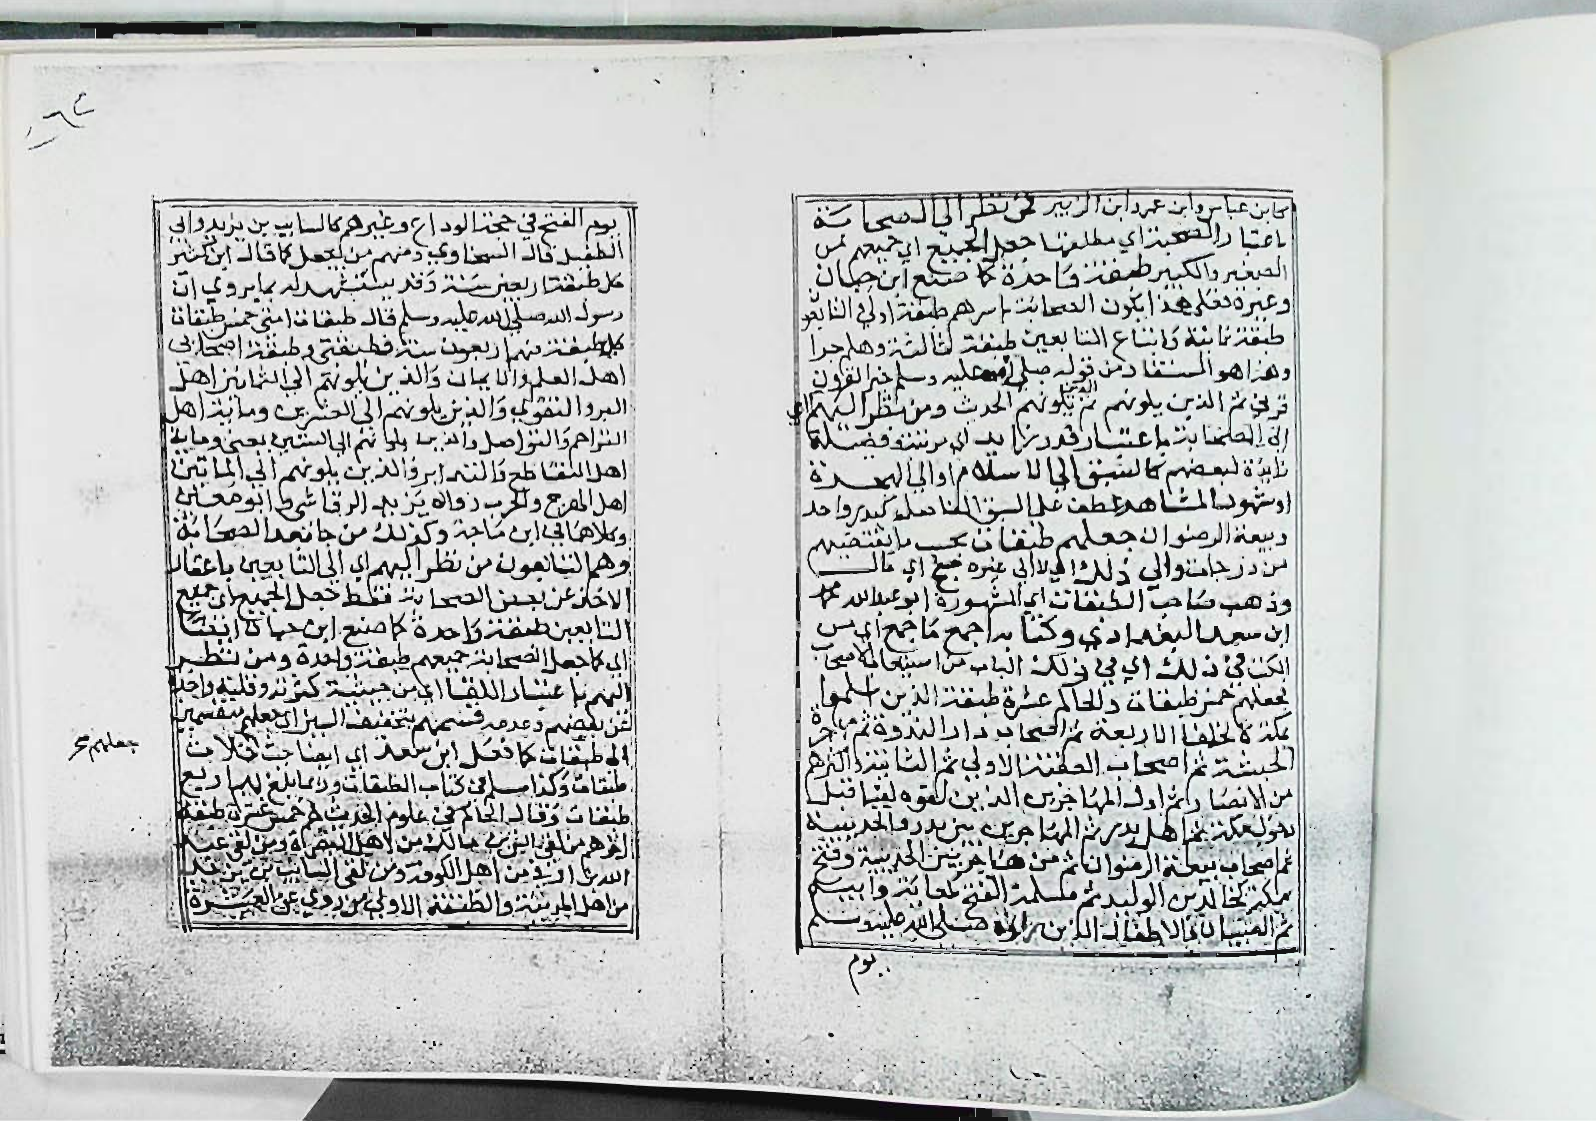 كابن عباس وابن عمر وابن الزبير فمن نظر الى الصحابة
باعتبار الصحبة اي مطلقها جعل الجميع اي جميعهم من
الصغير والكبير طبقة واحدة كما صنع ابن حبان
وغيره فعلى هذا يكون الصحابة باسرهم طبقة اولى التابعون
طبقة ثانية واتباع التابعين طبقة ثالثة وهلم جرا
وهذا هو المستفاد من قوله صلى الله عليه وسلم خير القرون
قرني ثم الذين يلونهم ثم الذين يلونهم الحديث ومن نظر اليهم اي
الى الصحابة باعتبار قدر زايد اي مرتبة وفضيلة
زايدة لبعضهم كالسبق الى الاسلام او الى الهجرة
او شهود المشاهد عطف على السبق الفاضلة كبدر واحد
وبيعة الرضوان جعلهم طبقات بحسب ما يقتضيهم
من درجات والى ذلك اي لا الى غيره جنح اي مال
وذهب صاحب الطبقات اي المشهورة ابو عبد الله محمد
ابن سعد البغدادي وكتابه اجمع ما جمع اي من
الكتب في ذلك اي في ذلك الباب من استيعاب الاصحاب
فجعلهم خمس طبقات وللحاكم عشرة طبقة الذين اسلموا
بمكة كالخلفا الاربعة ثم اصحاب دار الندوة ثم مهاجرة
الحبشة ثم اصحاب العقبة الاولى ثم الثانية واكثرهم
من الانصار ثم اول المهاجرين الذين لقوه بقبا قبل
دخول مكة ثم اهل بدر ثم المهاجرين بين بدر والحديبية
ثم اصحاب بيعة الرضوان ثم من هاجر بين الحديبية وفتح
مكة كخالد بن الوليد ثم مسلمة الفتح كمعاوية وابيه
ثم الصبيان والاطفال الذين راوه صلى الله عليه وسلم
يوم
يوم الفتح في حجة الوداع وغيرهم كالسايب بن يزيد وابي
الطفيل قال السخاوي ومنهم من يجعل كما قال ابن كثير
كل طبقة اربعين سنة وقد يستشهد له بما يروي ان
رسول الله صلى الله عليه وسلم قال طبقات امتي خمس طبقات
كل طبقة منهم اربعون سنة فطبقتي وطبقة اصحابي
اهل العلم والايمان والذين يلونهم الى الثمانين اهل
البر والتقوى والذين يلونهم الى العشرين وماية اهل
التراحم والتواصل والذين يلونهم الى الستين يعني وماية
اهل التقاطع والتدابر والذين يلونهم الى المايتين
اهل الهرج والحرب رواه يزيد الرقاشي وابو معن
وكلاهما في ابن ماجة وكذلك من جا بعد الصحابة
وهم التابعون من نظر اليهم اي الى التابعين باعتبار
الاخذ عن بعض الصحابة فقط جعل الجميع اي جميع
التابعين طبقة واحدة كما صنع ابن حبان ايضا
اي كما جعل الصحابة جميعهم طبقة واحدة ومن نظر
اليهم باعتبار اللقا اي من حيثية كثرته وقلته واخذ
عن بعضهم وعدمه قسمهم بتخفيف السين اي جعلهم منقسمين
الى طبقات كما فعل ابن سعد اي ايضا حيث ثلاث
جعلهم صح
طبقات وكذا مسلم في كتاب الطبقات وربما بلغ بها اربع
طبقات وقال الحاكم في علوم الحديث هم خمس عشرة طبقة
اخرهم من لقي انس بن مالك من اهل البصرة ومن لقي عبد
الله بن ابي اوفى من اهل الكوفة ومن لقي السايب بن يزيد
من اهل المدينة والطبقة الاولى من روى عن العشرة